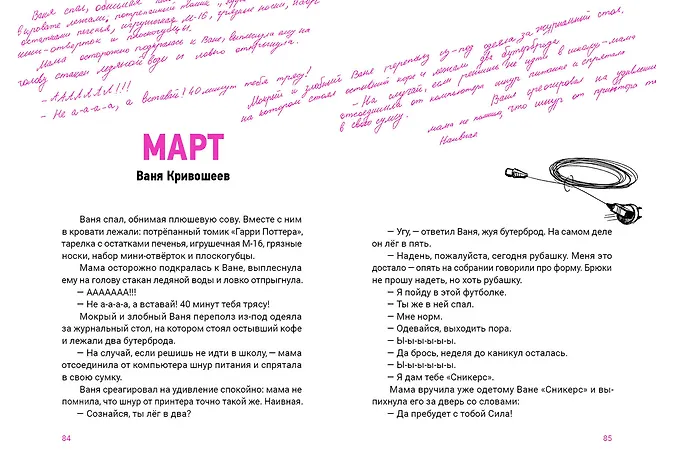 Ваня спал, обнимая
в кровати лежали: потрёпанный томик
остатками печенья, игрушечная М-16, грязные носки, набор
мини-отвёрток и плоскогубцы.
Мама осторожно подкралась к Ване, выплеснула ему на
голову стакан ледяной воды и ловко отпрыгнула.
– ААААААА!!!
– Не а-а-а-а, а вставай! 40 минут тебя трясу!
Мокрый и злобный Ваня переполз из-под одеяла за журнальный стол,
на котором стоял остывший кофе и лежали два бутерброда.
– На случай, если решишь не идти в школу, – мама
отсоединила от компьютера шнур питания и спрятала
в свою сумку.
Ваня среагировал на удивление
мама не помнила, что шнур от принтера
Наивная
МАРТ
Ваня Кривошеев
Ваня спал, обнимая плюшевую сову. Вместе с ним
в кровати лежали: потрёпанный томик «Гарри Поттера»,
тарелка с остатками печенья, игрушечная М-16, грязные
носки, набор мини-отвёрток и плоскогубцы.
Мама осторожно подкралась к Ване, выплеснула
ему на голову стакан ледяной воды и ловко отпрыгнула.
— ААААААА!!!
— Не а-а-а-а, а вставай! 40 минут тебя трясу!
Мокрый и злобный Ваня переполз из-под одеяла
за журнальный стол, на котором стоял остывший кофе
и лежали два бутерброда.
— На случай, если решишь не идти в школу, — мама
отсоединила от компьютера шнур питания и спрятала
в свою сумку.
Ваня среагировал на удивление спокойно: мама не
помнила, что шнур от принтера точно такой же. Наивная.
— Сознайся, ты лёг в два?
84
— Угу, — ответил Ваня, жуя бутерброд. На самом деле
он лёг в пять.
— Надень, пожалуйста, сегодня рубашку. Меня это
достало — опять на собрании говорили про форму. Брюки
не прошу надеть, но хоть рубашку.
— Я пойду в этой футболке.
— Ты же в ней спал.
— Мне норм.
— Одевайся, выходить пора.
— Ы-ы-ы-ы-ы.
— Да брось, неделя до каникул осталась.
— Ы-ы-ы-ы-ы.
— Я дам тебе «Сникерс».
Мама вручила уже одетому Ване «Сникерс» и вы-
пихнула его за дверь со словами:
— Да пребудет с тобой Сила!
85